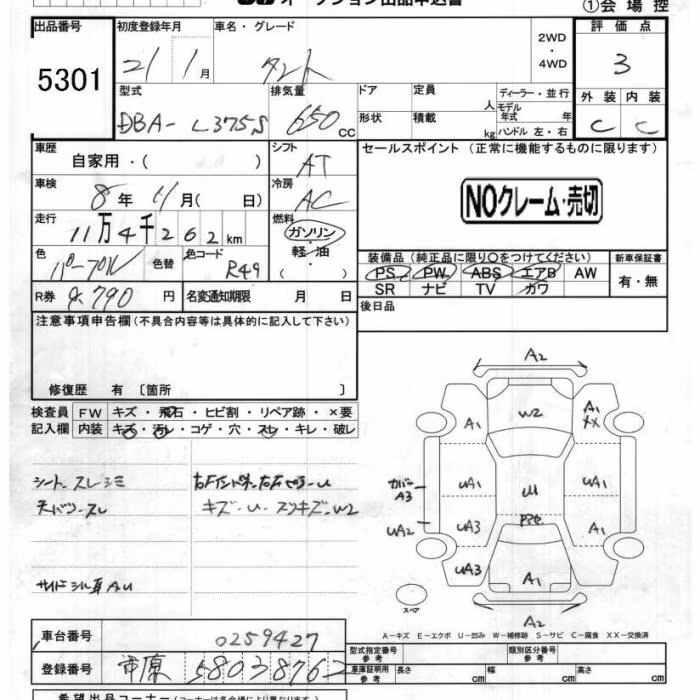 オークション出品申込書
①会場控
出品番号 初度登録年月 車名・グレード 2WD ・ 4WD 評価点
5301 21 1月 タント 3
型式 排気量 ドア 定員 人 ディーラー・並行 外装 内装
DBA-L375S 650 cc 形状 積載 kg モデル年式 年 ハンドル 左・右 C C
車歴 自家用・( ) シフト AT セールスポイント (正常に機能するものに限ります)
車検 8年 11月( 日) 冷房 AC NOクレーム・売切
走行 11万4千262km 燃料 ガソリン・軽油
色 パープル 色替 色コード R49 装備品 (純正品に限り○をつけてください) 新車保証書
PS PW ABS エアB AW 有・無
SR ナビ TV カワ
R券 8,790円 名変通知期限 月 日 後日品
注意事項申告欄(不具合内容等は具体的に記入して下さい)
修復歴 有〔箇所 〕
検査員 FW キズ・飛石・ヒビ割・リペア跡・×要
記入欄 内装 キズ・汚レ・コゲ・穴・スレ・キレ・破レ
シート スレ シミ
天バリ スレ キズ・U・スリキズ・W2
サイドシル 耳 AU
A2
W2
A1 A1 XX
カバー A3 UA1 U UA1
UA2 UA3 A1
UA3 A1
スペア A2
A-キズ E-エクボ U-凹み W-補修跡 S-サビ C-腐食 XX-交換済
車台番号 0259427
登録番号 市原 580 3 8762
型式指定番号 参考 類別区分番号 参考
車庫証明用 参考 長さ cm 幅 cm 高さ cm
希望出品コーナー